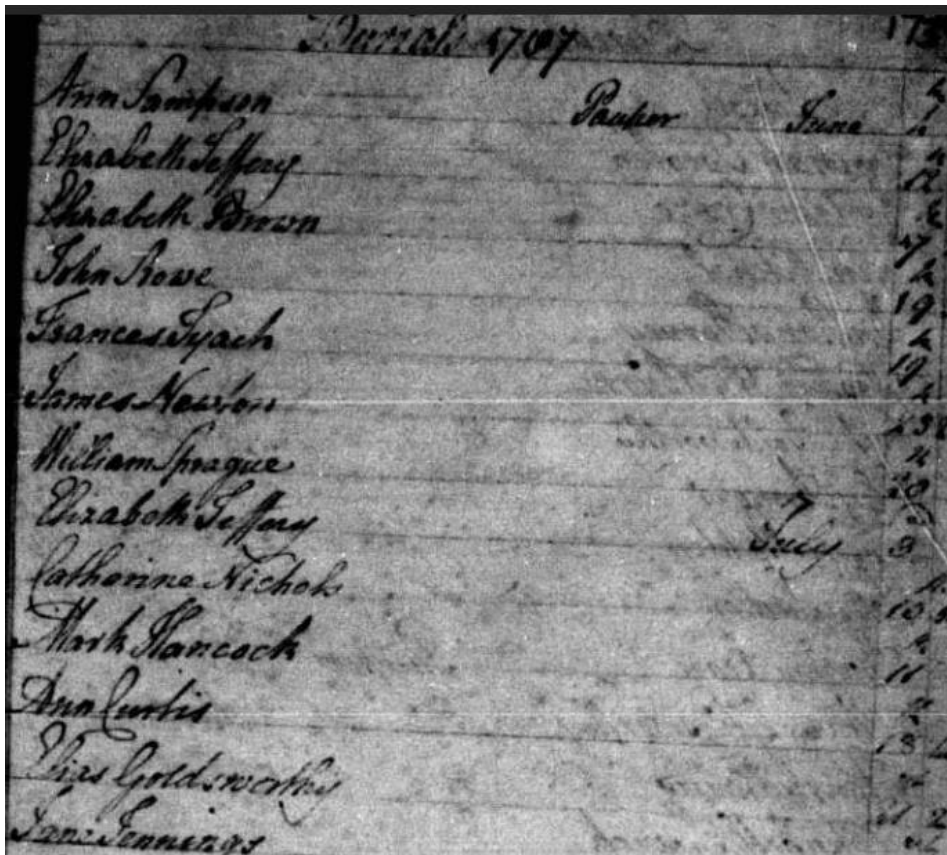 Burials 1787
Ann Sampson Pauper June
Elizabeth Jeffery 12
Elizabeth Brown 17
John Rowe 19
Frances Tyack 19
James Newton 23
William Sprague 28
Elizabeth Jeffery July 3
Catherine Nichols 10
Mark Hancock 11
Ann Curtis 13
Elias Goldsworthy 21
Jane Jennings